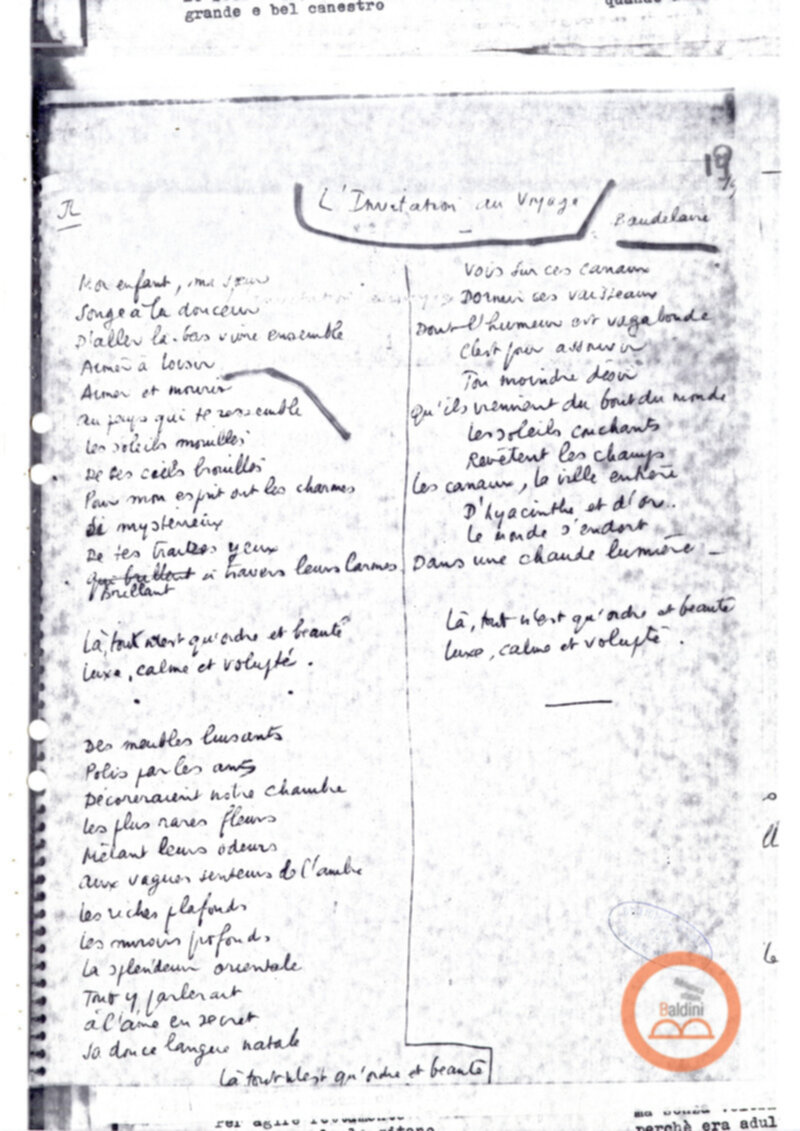 grande e bel canestro
19
L'Invitation au Voyage
Baudelaire
Mon enfant, ma sœur
Songe à la douceur
D'aller là-bas vivre ensemble
Aimer à loisir
Aimer et mourir
au pays qui te ressemble
Les soleils mouillés
De ces ciels brouillés
Pour mon esprit ont les charmes
Si mystérieux
De tes traitres yeux
qui brillent à travers leurs larmes
Brillant
Là, tout n'est qu'ordre et beauté
luxe, calme et volupté.
Des meubles luisants
Polis par les ans
Décoreraient notre chambre
Les plus rares fleurs
Mêlant leurs odeurs
aux vagues senteurs de l'ambre
Les riches plafonds
Les miroirs profonds
La splendeur orientale
Tout y parlerait
à l'âme en secret
Sa douce langue natale
Là tout n'est qu'ordre et beauté
Vois sur ces canaux
Dormir ces vaisseaux
Dont l'humeur est vagabonde
C'est pour assouvir
Ton moindre désir
qu'ils viennent du bout du monde
Les soleils couchants
Revêtent les champs
Les canaux, la ville entière
D'hyacinthe et d'or..
Le monde s'endort
Dans une chaude lumière -
Là, tout n'est qu'ordre et beauté
luxe, calme et volupté.
Baldini
perchè era adul